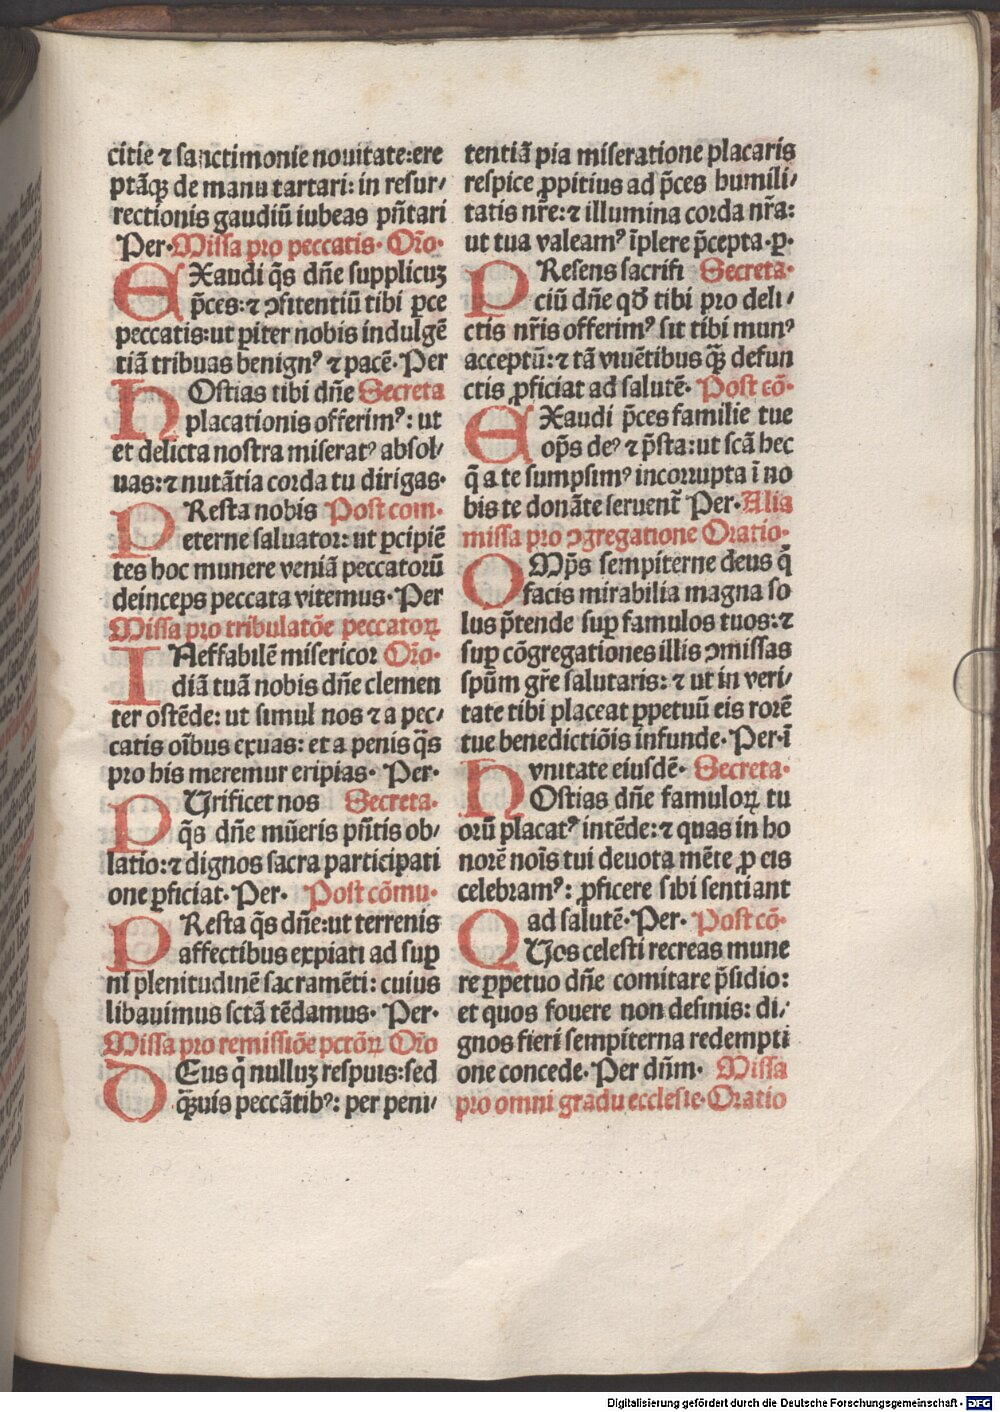 citie ⁊ sanctimonie nouitate:ere
ptāqꝫ de manu tartari: in resur⸗
rectionis gaudiū iubeas pn̄tari
Per. Missa pro peccatis. Or̄o.
EXaudi q̄s dn̄e supplicuꝫ
p̄ces:⁊ ꝯfitentiū tibi ꝑce
peccatis:ut ꝑiter nobis indulgē
tiā tribuas benignꝰ ⁊ pacē. Per
HOstias tibi dn̄e Secreta
placationis offerimꝰ: ut
et delicta nostra miseratꝰ absol⸗
uas:⁊ nutātia corda tu dirigas.
PResta nobis Post com.
eterne saluator: ut ꝑcipiē
tes hoc munere veniā peccatorū
deinceps peccata vitemus. Per
Missa pro tribulatōe peccatoꝝ
INeffabilē misericor Or̄o.
diā tuā nobis dn̄e clemen
ter ostēde: ut simul nos ⁊ a pec⸗
catis oībus exuas: et a penis q̄s
pro his meremur eripias. Per.
PUrificet nos Secreta.
q̄s dn̄e mūeris pn̄tis ob⸗
latio:⁊ dignos sacra participati
one ꝑficiat. Per. Post cōmu.
PResta q̄s dn̄e:ut terrenis
affectibus expiati ad suꝑ
ni plenitudinē sacramēti: cuius
libauimus sctā tēdamus. Per.
Missa pro remissiōe pctōꝝ Or̄o
DEus q̄ nulluꝫ respuis:sed
q̄ȝuis peccātibꝰ: per peni⸗
tentiā pia miseratione placaris
respice ꝓpitius ad p̄ces humili⸗
tatis nr̄e:⁊ illumina corda nr̄a:
ut tua valeamꝰ īplere p̄cepta.ꝑ.
PResens sacrifi Secreta.
ciū dn̄e qđ tibi pro deli⸗
ctis nr̄is offerimꝰ sit tibi munꝰ
acceptū:⁊ tā viuētibus q̄ȝ defun
ctis ꝓficiat ad salutē. Post cō.
EXaudi p̄ces familie tue
op̄s deꝰ ⁊ p̄sta:ut scā hec
q̄ a te sumpsimꝰ incorrupta ī no
bis te donāte seruent̄ Per. Alia
missa pro ꝯgregatione Oratio.
OMp̄s sempiterne deus q̄
facis mirabilia magna so
lus p̄tende suꝑ famulos tuos:⁊
suꝑ cōgregationes illis ꝯmissas
spūm gr̄e salutaris: ⁊ ut in veri⸗
tate tibi placeat ꝑpetuū eis rorē
tue benedictiōis infunde. Per.ī
vnitate eiusdē. Secreta.
HOstias dn̄e famuloꝝ tu
orū placatꝰ intēde:⁊ quas in ho
norē noīs tui deuota mēte ꝓ eis
celebramꝰ: ꝓficere sibi sentiant
ad salutē. Per. Post cō.
QUos celesti recreas mune
re ꝑpetuo dn̄e comitare p̄sidio:
et quos fouere non desinis: di⸗
gnos fieri sempiterna redempti
one concede. Per dn̄m. Missa
pro omni gradu ecclesie. Oratio
Digitalisierung gefördert durch die Deutsche Forschungsgemeinschaft - DFG